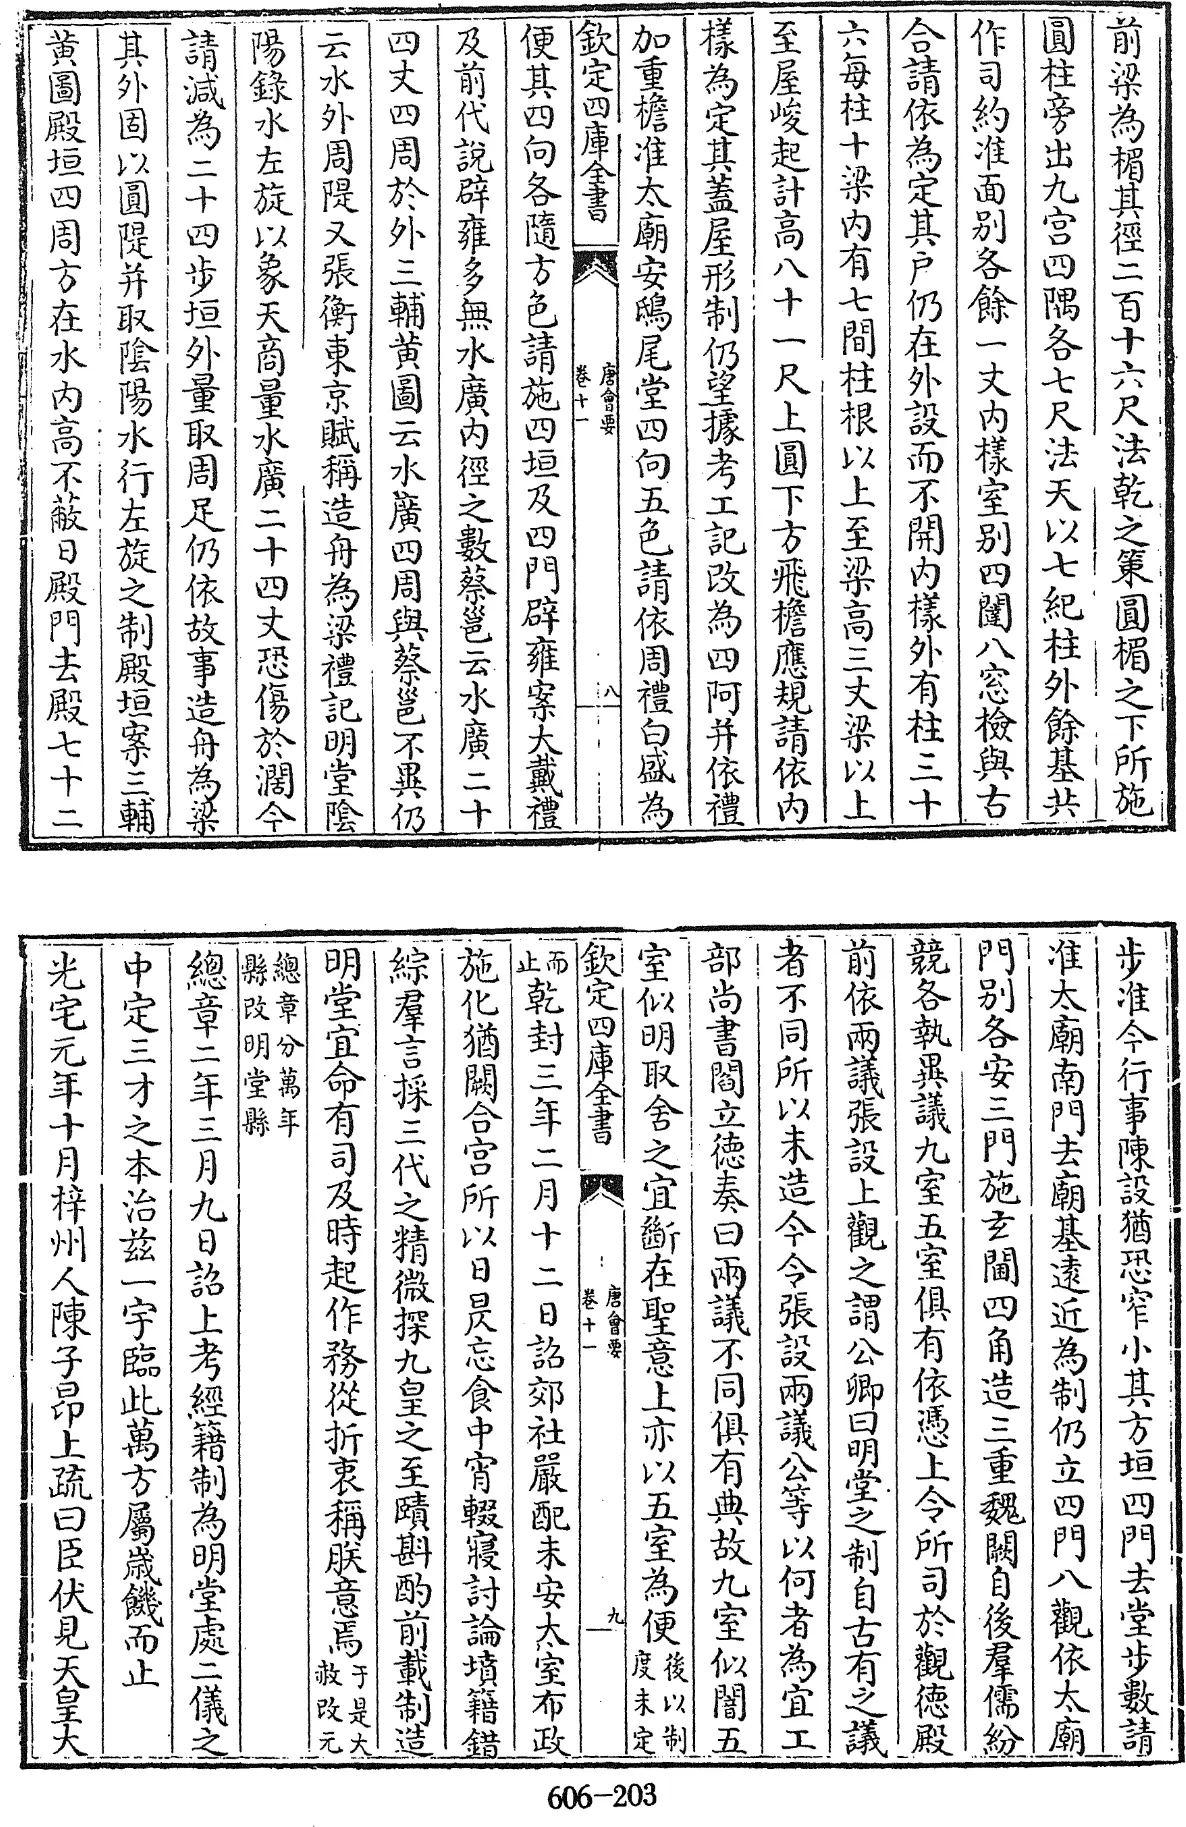 前梁為楣其徑二百十六尺法乾之策圓楣之下所施
圓柱旁出九宫四隅各七尺法天以七紀柱外餘基共
作司約准面别各餘一丈内樣室别四闥八窓檢與古
合請依為定其户仍在外設而不開内樣外有柱三十
六每柱十梁内有七間柱根以上至梁高三丈梁以上
至屋峻起計高八十一尺上圓下方飛檐應規請依内
樣為定其蓋屋形制仍望據考工記改為四阿并依禮
加重檐准太廟安鴟尾堂四向五色請依周禮白盛為
欽定四庫全書
唐會要
卷十一
八
便其四向各隨方色請施四垣及四門辟雍案大戴禮
及前代說辟雍多無水廣内徑之數蔡邕云水廣二十
四丈四周於外三輔黄圖云水廣四周與蔡邕不異仍
云水外周隄又張衡東京賦稱造舟為梁禮記明堂陰
陽錄水左旋以象天商量水廣二十四丈恐傷於濶今
請減為二十四步垣外量取周足仍依故事造舟為梁
其外固以圓隄并取陰陽水行左旋之制殿垣案三輔
黄圖殿垣四周方在水内高不蔽日殿門去殿七十二
步准今行事陳設猶恐窄小其方垣四門去堂步數請
准太廟南門去廟基遠近為制仍立四門八觀依太廟
門别各安三門施玄閫四角造三重魏闕自後羣儒紛
競各執異議九室五室俱有依憑上令所司於觀德殿
前依兩議張設上觀之謂公卿曰明堂之制自古有之議
者不同所以未造今令張設兩議公等以何者為宜工
部尚書閻立德奏曰兩議不同俱有典故九室似闇五
室似明取舍之宜斷在聖意上亦以五室為便後以制
度未定
欽定四庫全書
唐會要
卷十一
九
而
止乾封三年二月十二日詔郊社嚴配未安太室布政
施化猶闕合宫所以日昃忘食中宵輟寢討論墳籍錯
綜羣言採三代之精微探九皇之至賾斟酌前載制造
明堂宜命有司及時起作務從折衷稱朕意焉于是大
赦改元
總章分萬年
縣改明堂縣
總章二年三月九日詔上考經籍制為明堂處二儀之
中定三才之本治兹一宇臨此萬方屬歳饑而止
光宅元年十月梓州人陳子昂上疏曰臣伏見天皇大
606-203